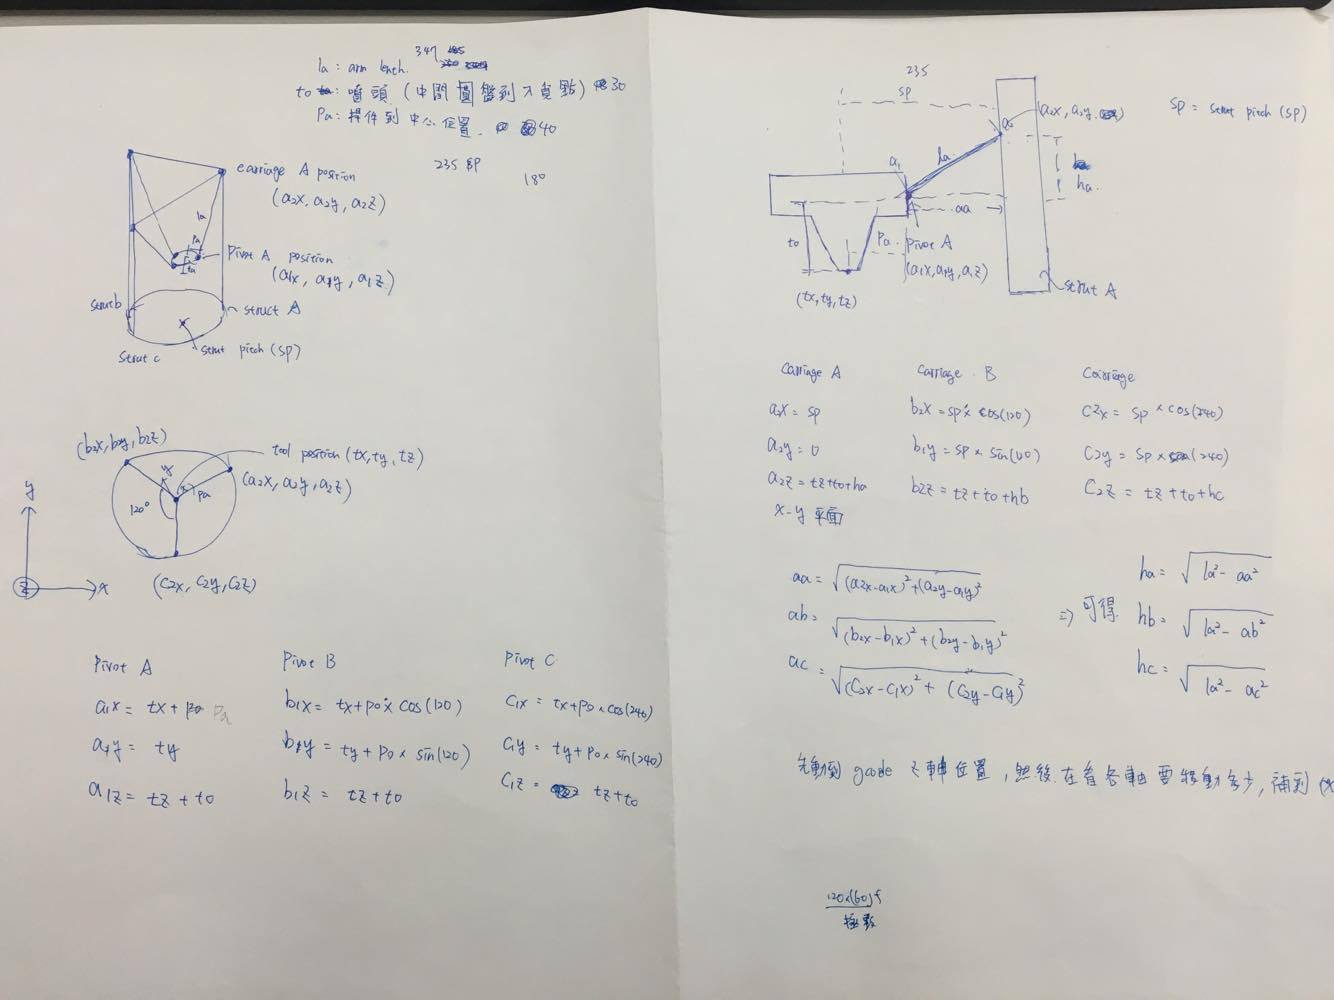 347
la : arm length.
to : 噴頭 (中間圓盤到下頂點) 30
Pa : 桿件到中心位置. 40
235 SP
18°
carriage A position
(a2x, a2y, a2z)
la
Pa
Pivot A position
(a1x, a1y, a1z)
strut b
struct A
strut c
strut pitch (SP)
(b2x, b2y, b2z)
tool position (tx, ty, tz)
(a2x, a2y, a2z)
Pa
120°
(c2x, c2y, c2z)
y
z
x
Pivot A
a1x = tx + Po Pa
a1y = ty
a1z = tz + to
Pivot B
b1x = tx + Po × cos(120)
b1y = ty + Po × sin(120)
b1z = tz + to
Pivot C
c1x = tx + Po × cos(240)
c1y = ty + Po × sin(240)
c1z = tz + to
235
SP
(a2x, a2y,
SP = strut pitch (SP)
a2
a1
la
ha.
aa
to
Pa
Pivot A
(a1x, a1y, a1z)
strut A
(tx, ty, tz)
Carriage A
a2x = SP
a2y = 0
a2z = tz + to + ha
x-y 平面
Carriage B
b2x = SP × cos(120)
b1y = SP × sin(120)
b2z = tz + to + hb
Carriage
c2x = SP × cos(240)
c2y = SP × (240)
c2z = tz + to + hc
aa = √(a2x-a1x)² + (a2y-a1y)²
ab = √(b2x-b1x)² + (b2y-b1y)²
ac = √(c2x-c1x)² + (c2y-c1y)²
⇒ 可得
ha = √la² - aa²
hb = √la² - ab²
hc = √la² - ac²
先動到 gcode z 軸位置, 然後在看各軸要移動多少, 補到 (x
120×(60)